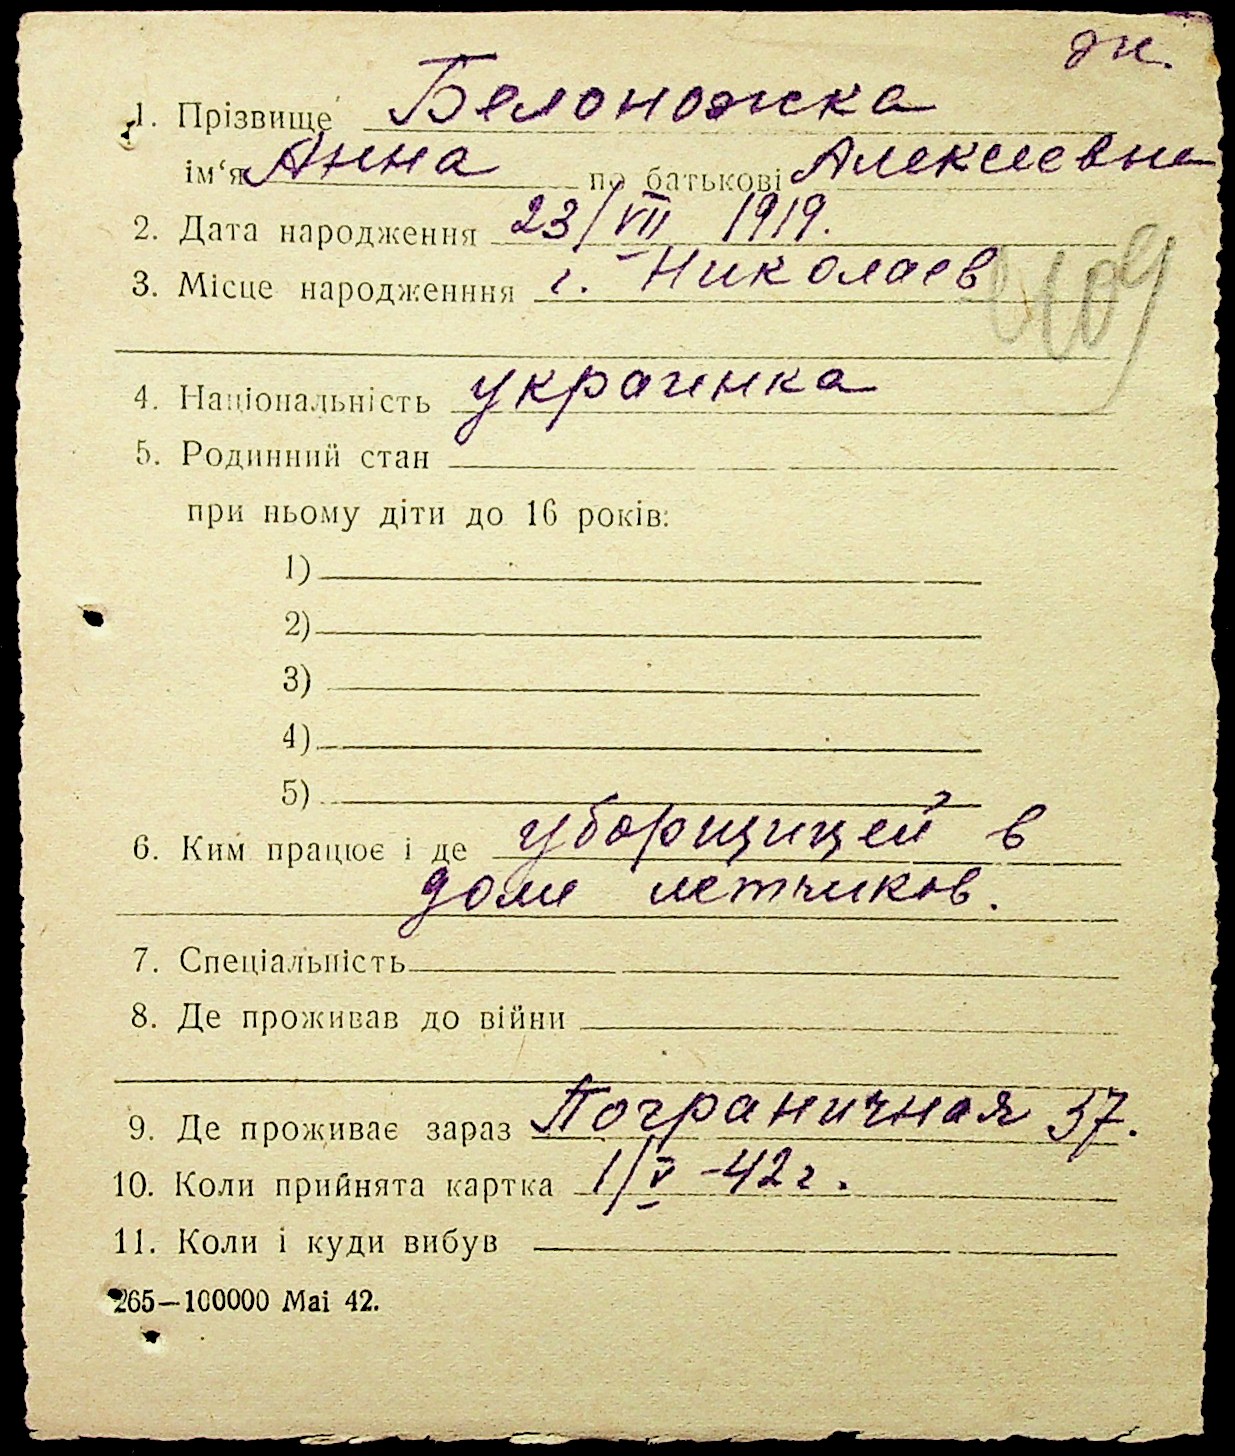 эк.
1. Прізвище Белоножка
ім‘я Анна по батькові Алексеевна
2. Дата народження 23/VII 1919.
3. Місце народженння г. Николаев
4. Національність украинка
5. Родинний стан
при ньому діти до 16 років:
1)
2)
3)
4)
5)
6. Ким працює і де уборщицей в
доме летчиков.
7. Спеціальність
8. Де проживав до війни
9. Де проживає зараз Пограничная 37.
10. Коли прийнята картка 1/V -42 г.
11. Коли і куди вибув
265—100000 Mai 42.